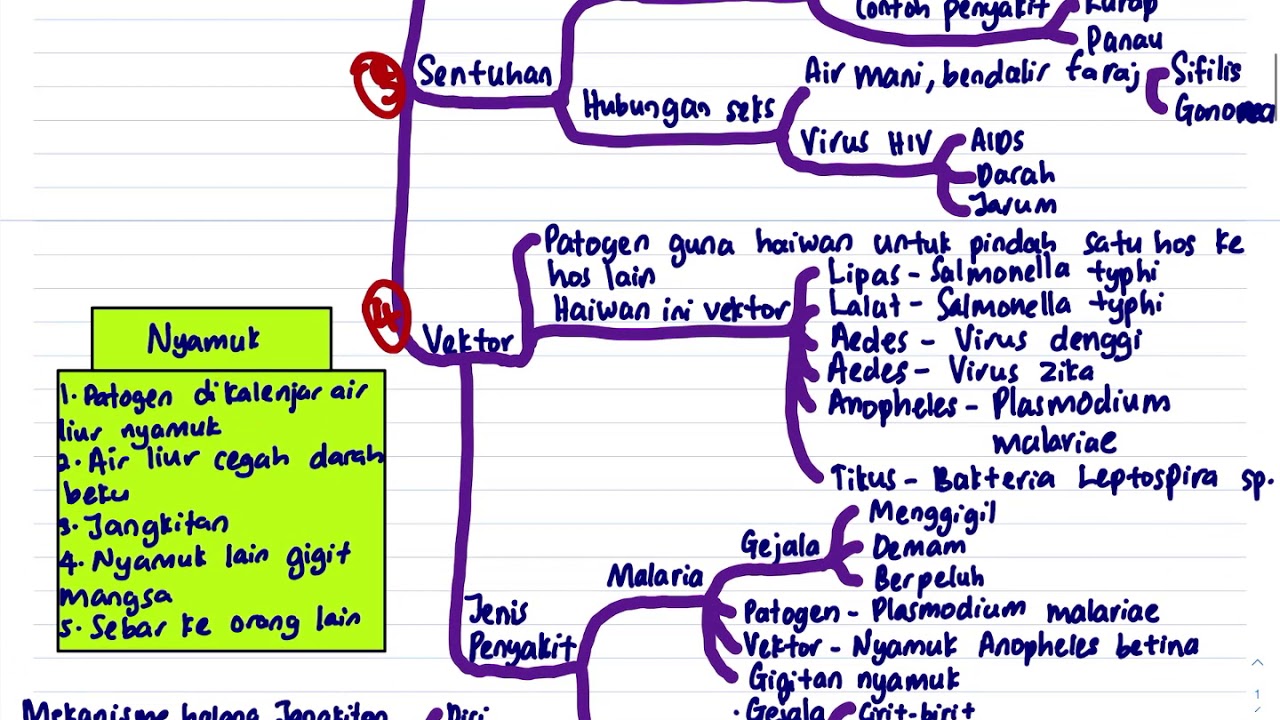 Contoh penyakit
Kurap
Panau
3
Sentuhan
Hubungan seks
Air mani, bendalir faraj
Sifilis
Virus HIV
AIDS
Darah
Jarum
4
Vektor
Patogen guna haiwan untuk pindah satu hos ke
hos lain
Haiwan ini vektor
Lipas - Salmonella typhi
Lalat - Salmonella typhi
Aedes - Virus denggi
Aedes - Virus zika
Anopheles - Plasmodium
malariae
Tikus - Bakteria Leptospira sp.
Nyamuk
1. Patogen di kalenjar air
liur nyamuk
2. Air liur cegah darah
beku
3. Jangkitan
4. Nyamuk lain gigit
mangsa
5. Sebar ke orang lain
Jenis
Penyakit
Malaria
Gejala
Menggigil
Demam
Berpeluh
Patogen - Plasmodium malariae
Vektor - Nyamuk Anopheles betina
Gigitan nyamuk
Mekanisme halang Jangkitan
Diri
· Gejala
Cirit-birit
1